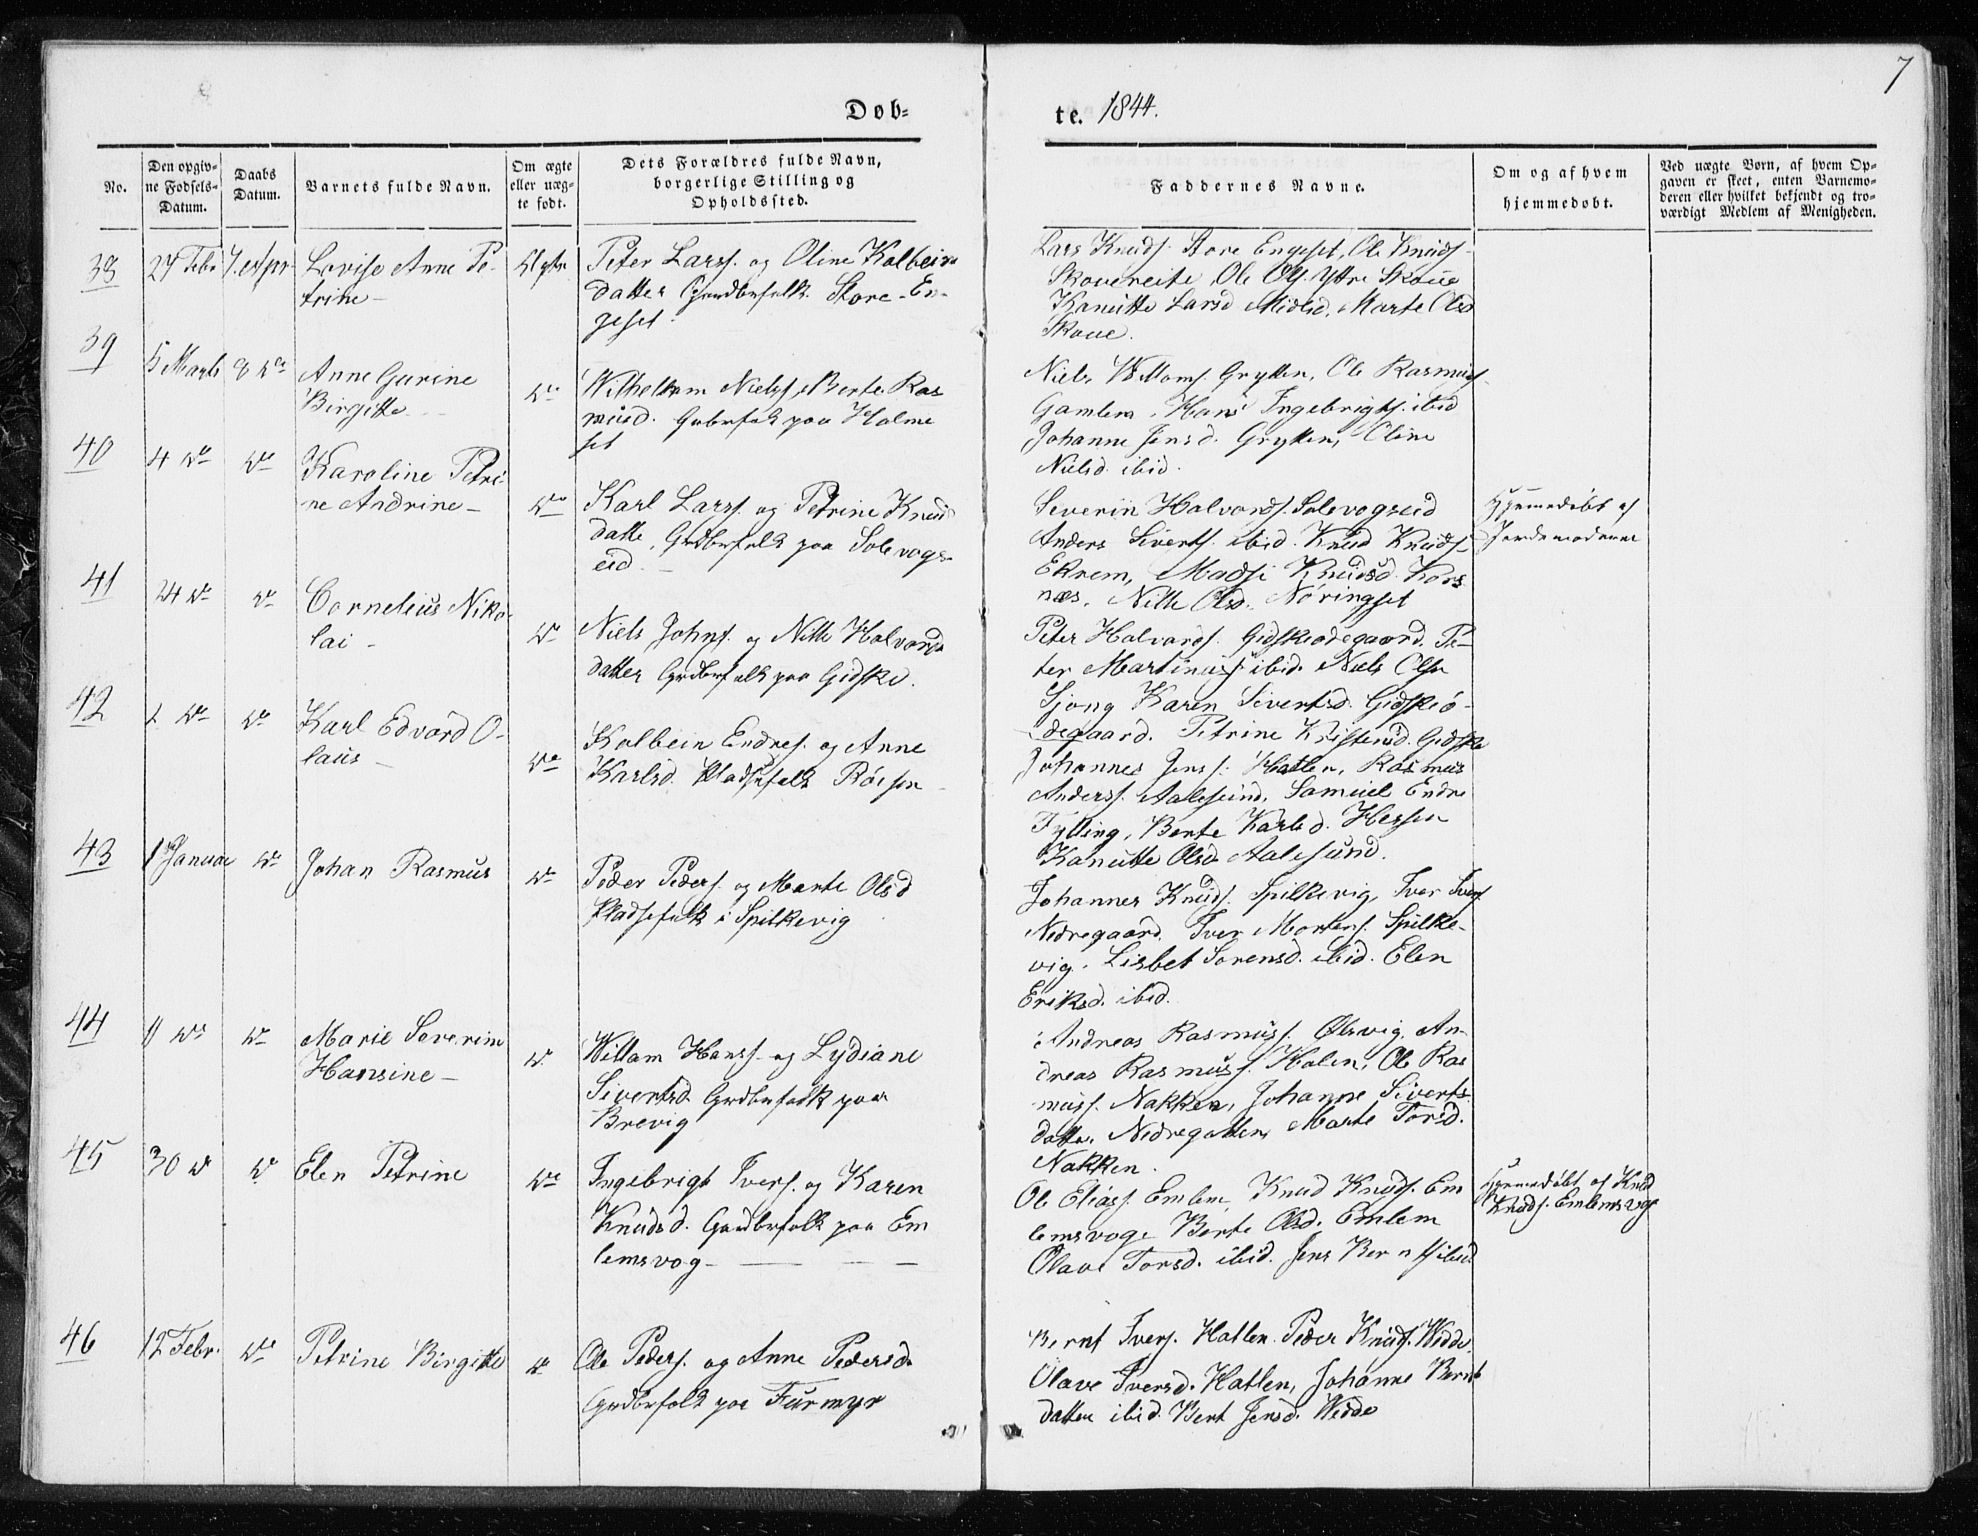 7
Døb-
te. 1844.
No.
Den opgiv-
ne Fødsels-
Datum.
Daabs
Datum.
Barnets fulde Navn.
Om ægte
eller uæg-
te født.
Dets Forældres fulde Navn,
borgerlige Stilling og
Opholdssted.
Faddernes Navne.
Om og af hvem
hjemmedøbt.
Ved uægte Børn, af hvem Op-
gaven er skeet, enten Barnemo-
deren eller hvilket bekjendt og tro-
værdigt Medlem af Menigheden.
38
27 Febr
7. Apr
Lovise Anne Pe-
trine -
Ægte
Peter Larss. og Oline Kolbeins
datter Gaardbrfolk Store-En-
geset.
Lars Knuds. Store Engeset, Ole Knuds.
Skouereite Ole Ols. Yttre Skoue
Kanutte Larsd Midlid. Marte Olsd
Skoue.
39
5 Marts
8 do
Anne Gurine
Birgitte -
do
Wilhellem Nielss. Berte Ras
musd. Gdbrfolk paa Holme
set
Niels Willoms. Grytten, Ole Rasmuss.
Gamlem, Hans Ingebrigts. ibid
Johanne Jensd. Grytten, Oline
Nielsd. ibid.
40
4 do
do
Karoline Petri-
ne Andrine -
do
Karl Larss. og Petrine Knuds
datte, Grdbrfolk paa Solevogs-
eid. -
Severin Halvords. Solevogseid
Anders Siverts. ibid. Knud Knuds.
Ekrem, Madsi Knudsd. Kors
næs. Nille Olsd. Nøringset
Hjemmedøbt af
Jordemoderen
41
24 do
do
Cornelius Niko-
lai -
do
Niels Johns. og Nille Halvords
datter Grdbrfolk paa Gidske.
Peter Halvords. Gidskeødegaard. Pe-
ter Martinuss. ibid. Niels Olsn
Gjong Karen Sivertsd. Gidskeø-
degaard. Petrine Kristensd. Gidske
42
1 do
do
Karl Edvard O-
laus -
do
Kolbein Endres. og Anne
Karlsd. Pladsefolk
Johannes Jenss. Hatlen, Rasmus
Anderss. Aalesund, Samuel Endre
Fylling, Berte Karlsd. Hessen
Kanutte Olsd Aalesund.
43
1 Januar
do
Johan Rasmus
do
Peder Peders. og Marte Olsd
Pladsefolk i Spilkevig
Johannes Knuds. Spilkevig, Iver Ivers.
Nedregaard. Iver Mortens. Spilke-
vig. Lisbet Sorensd. ibid. Elen
Eriksd. ibid.
44
11 do
do
Marie Severine
Hansine -
do
Willam Hanss. og Lydiane
Sivertsd. Grdbrfolk paa
Brevig
Andreas Rasmuss. Ølsvig, An-
dreas Rasmuss. Holen, Ole Ras
muss. Nakken, Johanne Siverts
datter. Nedregotten, Marte Torsd.
Nakken.
45
30 do
do
Elen Petrine
do
Ingebrigt Ivers. og Karen
Knudsd. Gaardbrfolk paa Em
lemsvog -
Ole Eliass. Emlem, Knud Knuds. Em
lemsvoge Berte Olsd. Emlem
Olave Torsd. ibid. Jens ibid
Hjemmedøbt af Knud
Knuds. Emlemsvog
46
12 Febr.
do
Petrine Birgitte
do
Ole Peders. og Anne Pedersd.
Grdbrfolk paa Furmyr
Bernt Ivers. Hatlen Peder Knuds. Wedde.
Olave Iversd. Hatlen, Johanne Bernt
datter ibid. Jensd. Wedde